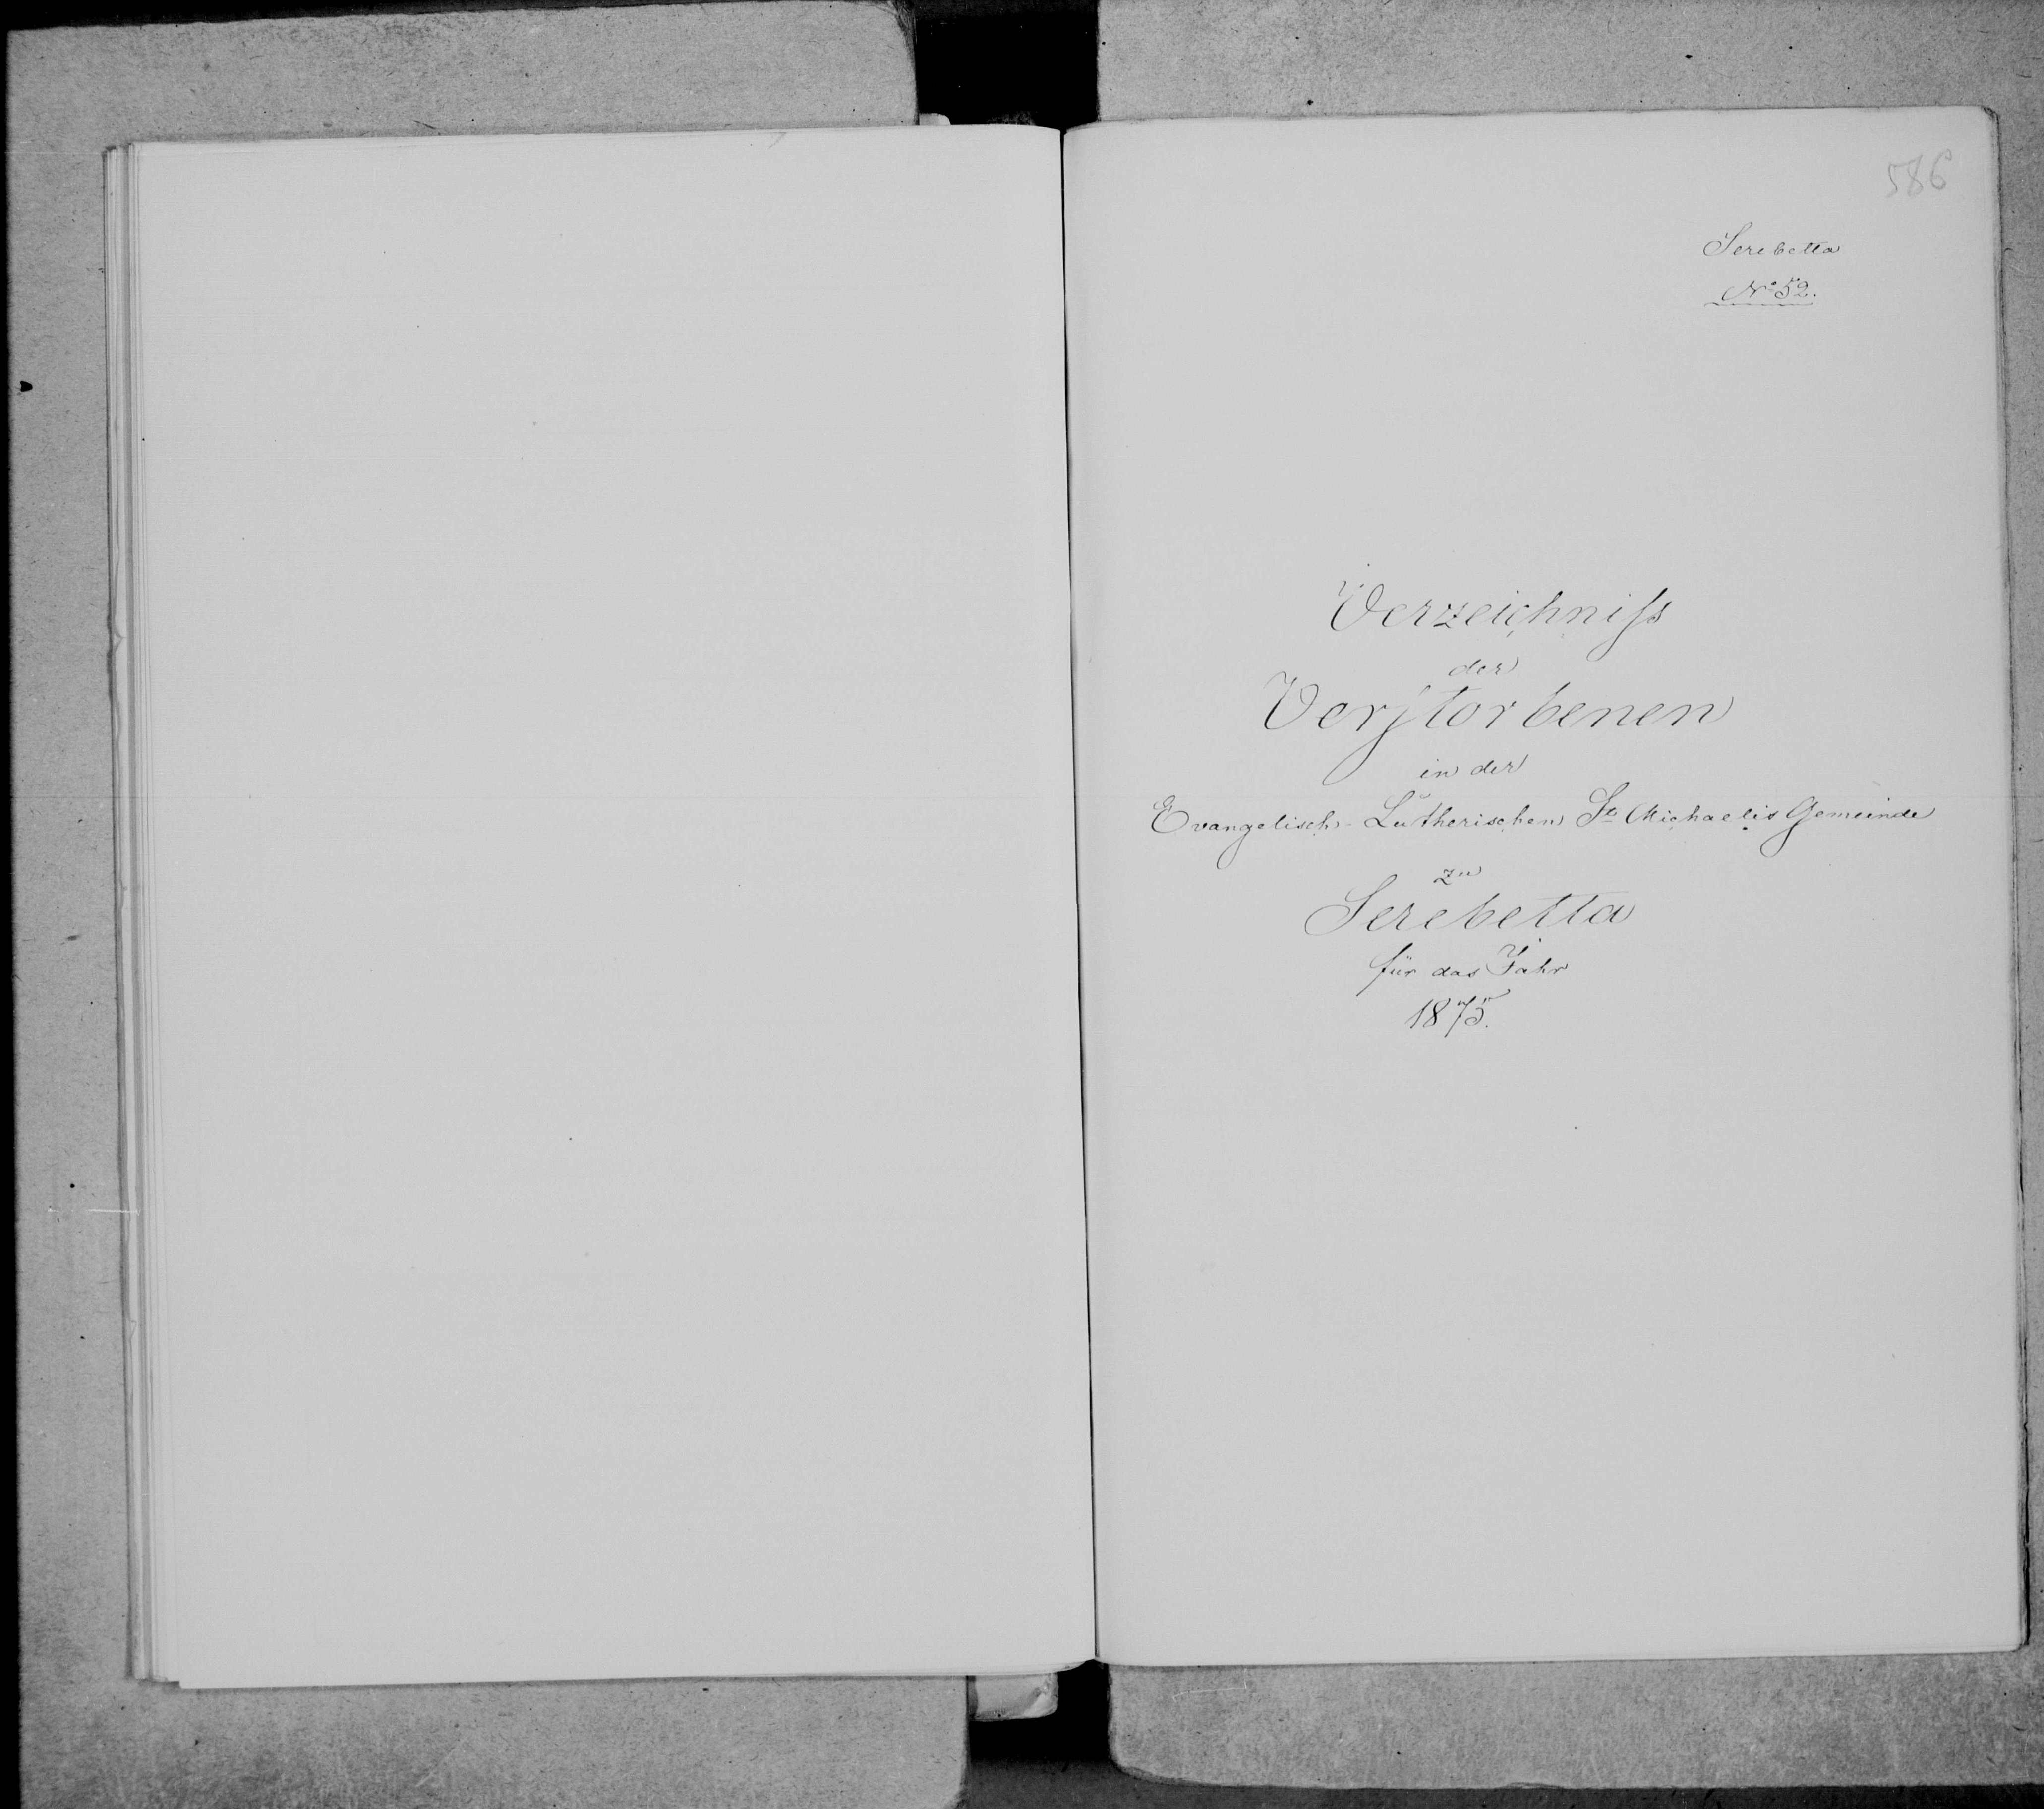 586
Serebetta
No 52.
Verzeichniss
der
Verstorbenen
in der
Evangelisch-Lutherischen St Michaelis Gemeinde
zu
Serebetta
für das Jahr
1875.